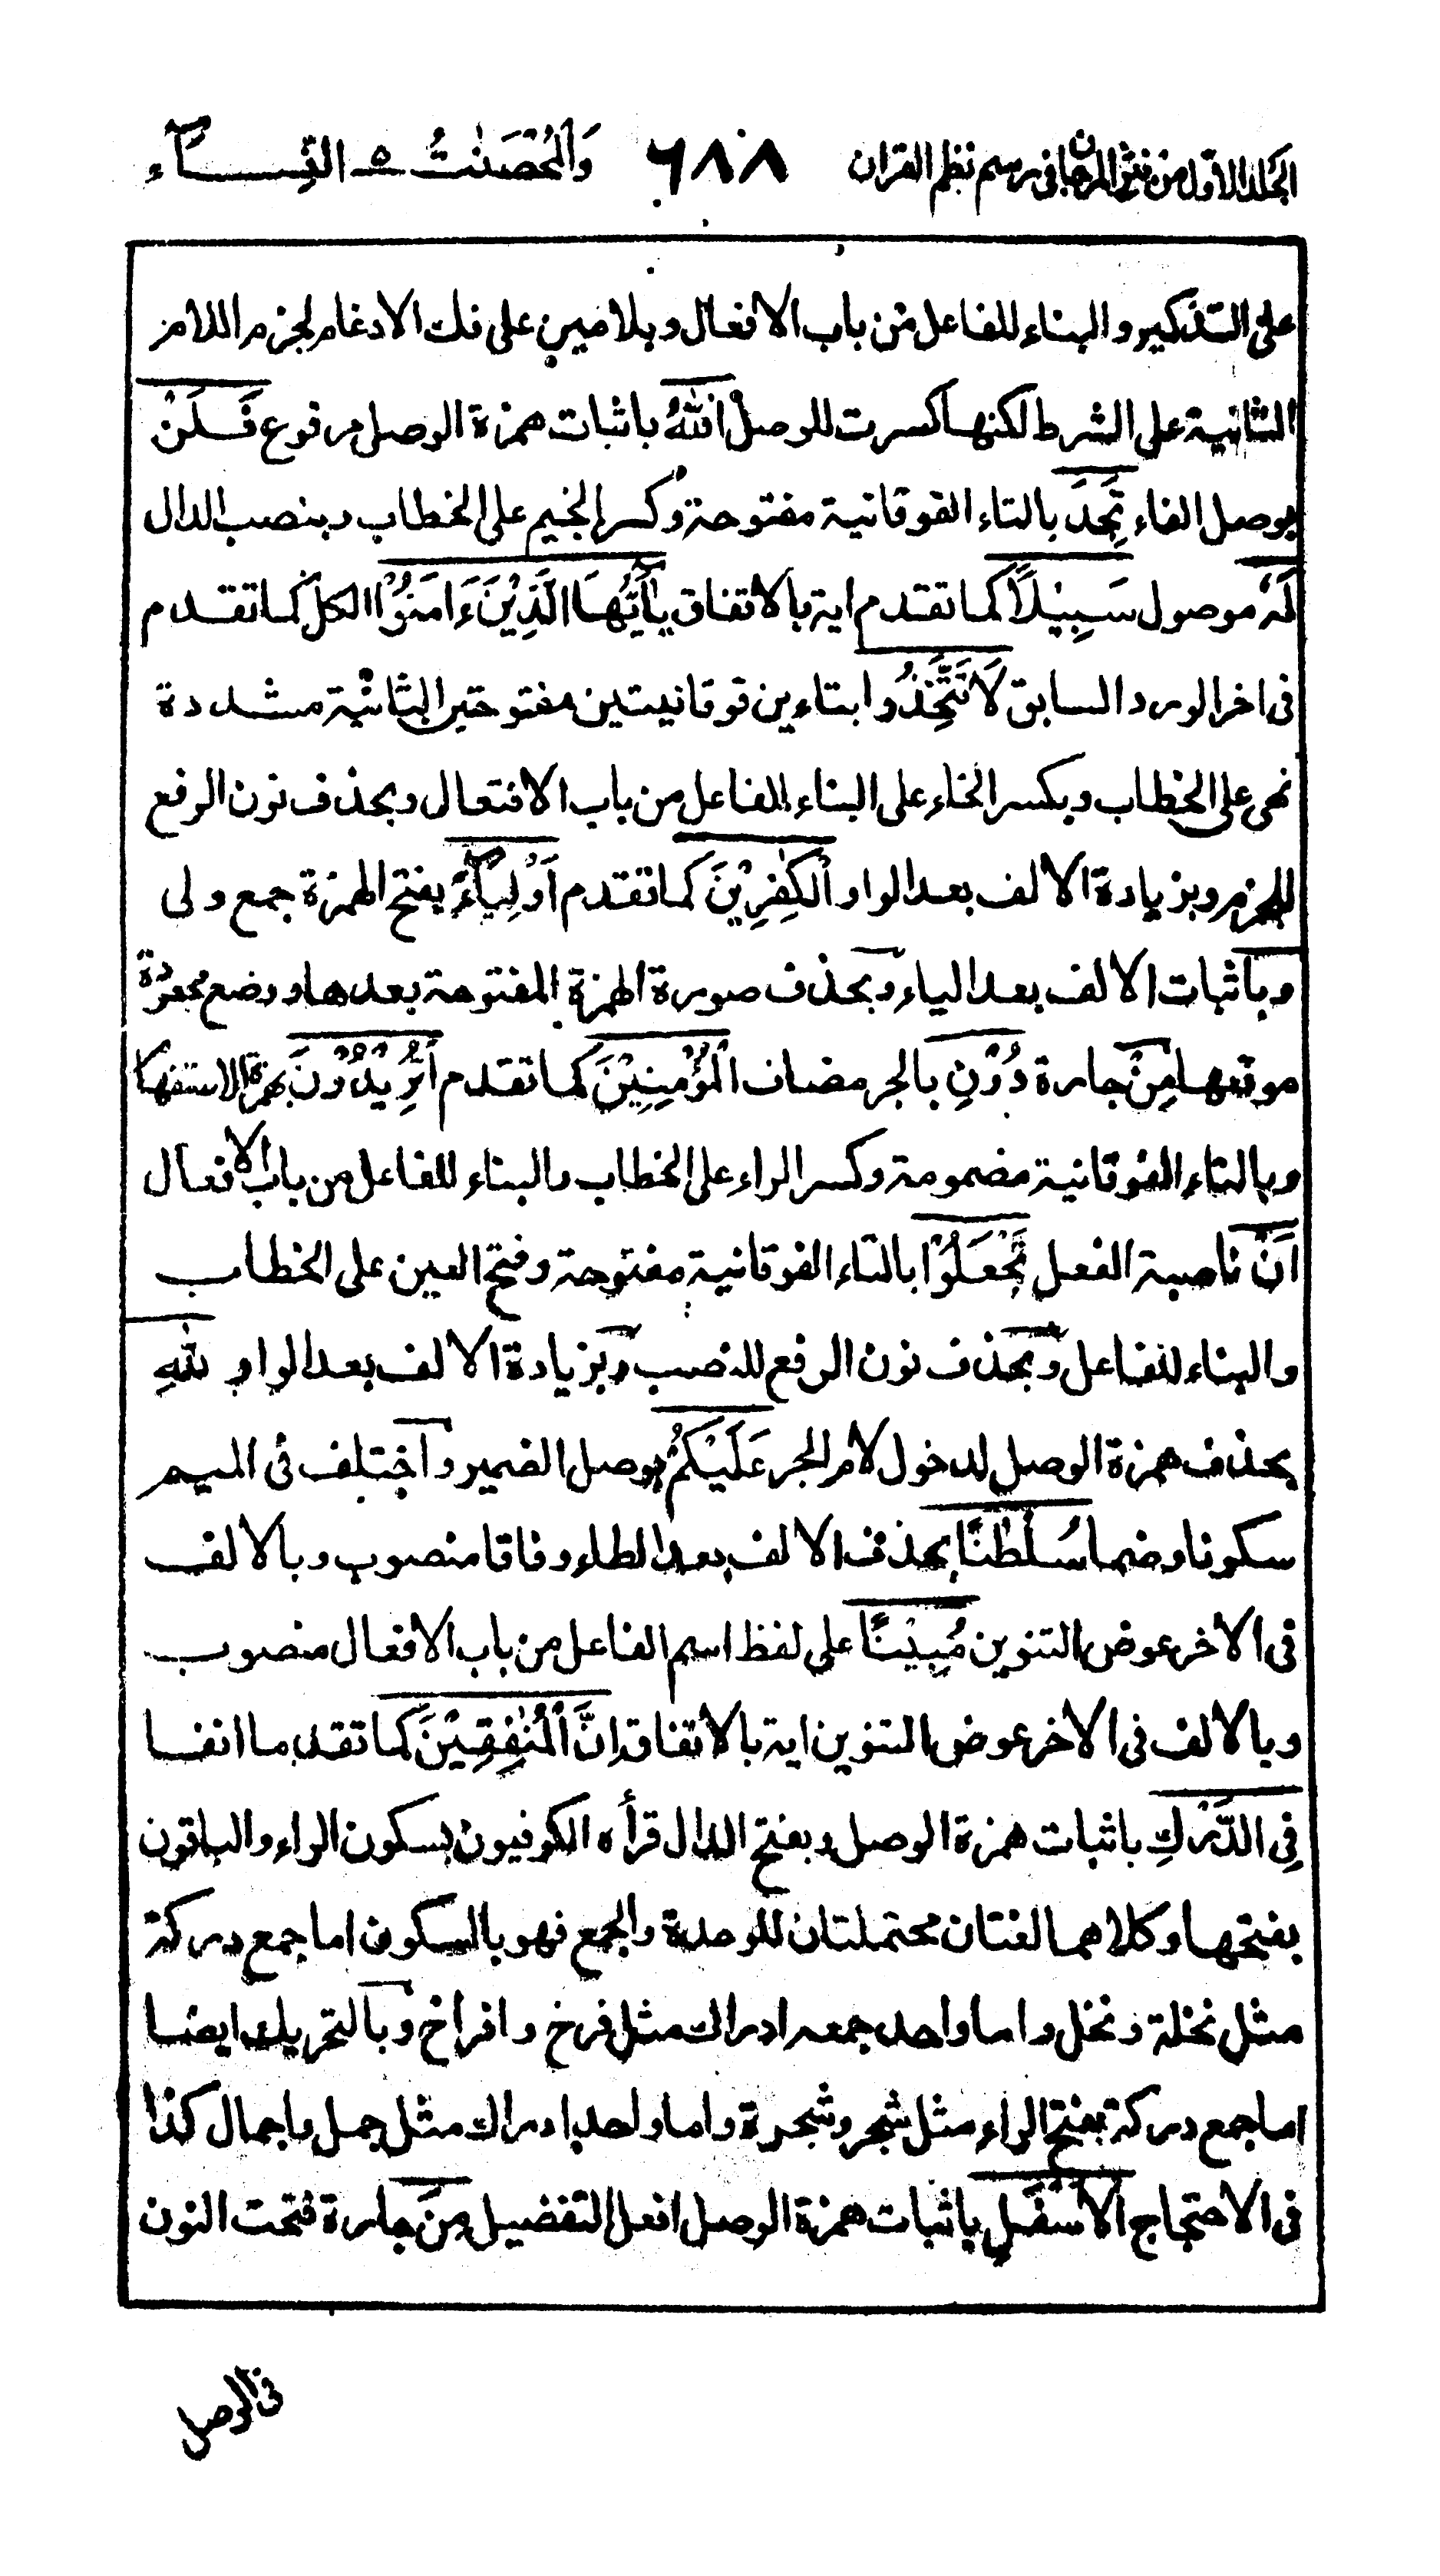 الجلد الاول من نثر المرجان فى رسم نظم القران ٦٨٨ وَالْمُحْصَنٰتُ ٥ النِّسَآء
على التذكير والبناء للفاعل من باب الافعال وبلامين على فك الادغام لجزم اللام
الثانية على الشرط لكنها كسرت للوصل اللهُ باثبات همزة الوصل مرفوع فَلَنْ
بوصل الفاء تَجِدَ بالتاء الفوقانية مفتوحة وكسر الجيم على الخطاب وبنصب الدال
لَهٗ موصول سَبِيْلًا كما تقدم اية بالاتفاق يٰٓاَيُّهَا الَّذِيْنَ ءَامَنُوْا الكل كما تقدم
فى اخر الورد السابق لَا تَتَّخِذُوا بتاءين فوقانيتين مفتوحتين الثانية مشددة
نهى على الخطاب وبكسر الخاء على البناء للفاعل من باب الافتعال وبحذف نون الرفع
للجزم وبزيادة الالف بعد الواو الْكٰفِرِيْنَ كما تقدم اَوْلِيَآءَ بفتح الهمزة جمع ولى
وباثبات الالف بعد الياء وبحذف صورة الهمزة المفتوحة بعدها ووضع مجعودة
موقعها مِنْ جارة دُوْنِ بالجر مضاف الْمُؤْمِنِيْنَ كما تقدم اَتُرِيْدُوْنَ بهمزة الاستفهام
وبالتاء الفوقانية مضمومة وكسر الراء على الخطاب والبناء للفاعل من باب الافعال
اَنْ ناصبة الفعل تَجْعَلُوْا بالتاء الفوقانية مفتوحة وفتح العين على الخطاب
والبناء للفاعل وبحذف نون الرفع للنصب وبزيادة الالف بعد الواو لِلّٰهِ
بحذف همزة الوصل لدخول لام الجر عَلَيْكُمْ بوصل الضمير واختلف فى الميم
سكونا وضما سُلْطٰنًا بحذف الالف بعد الطاء وفاقا منصوب وبالالف
فى الاخر عوض التنوين مُبِيْنًا على لفظ اسم الفاعل من باب الافعال منصوب
وبالالف فى الاخر عوض التنوين اية بالاتفاق اِنَّ الْمُنٰفِقِيْنَ كما تقدما انفا
فِى الدَّرْكِ باثبات همزة الوصل وبفتح الدال قرأه الكوفيون بسكون الراء والباقون
بفتحها وكلاهما لغتان محتملتان للوحدة والجمع فهو بالسكون اما جمع دركة
مثل نخلة ونخل واما واحد جمعه ادراك مثل فرخ وافراخ وبالتحريك ايضا
اما جمع دركة بفتح الراء مثل شجر وشجرة واما واحد ادراك مثل جمل واجمال كذا
فى الاحتجاج الْاَسْفَلِ باثبات همزة الوصل افعل التفضيل مِنَ جارة فتحت النون
فى الوصل